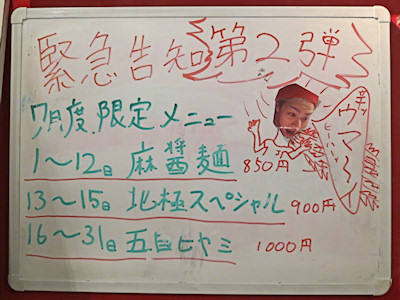 緊急告知第2弾
7月度限定メニュー
1〜12日 麻醤麺
850円
13〜15日 北極スペシャル 900円
16〜31日 五目ヒヤミ 1000円
ウマ〜